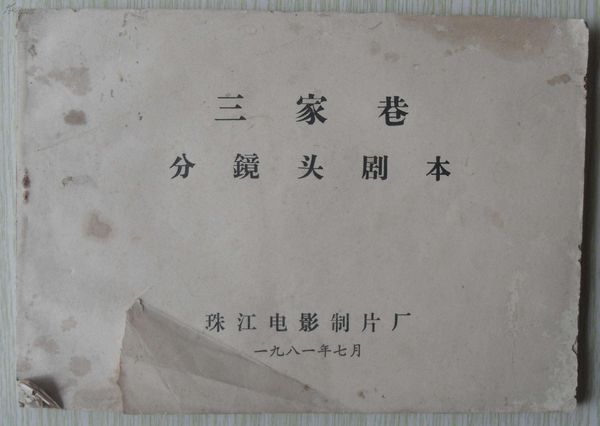 三家巷
分鏡头剧本
珠江电影制片厂
一九八一年七月